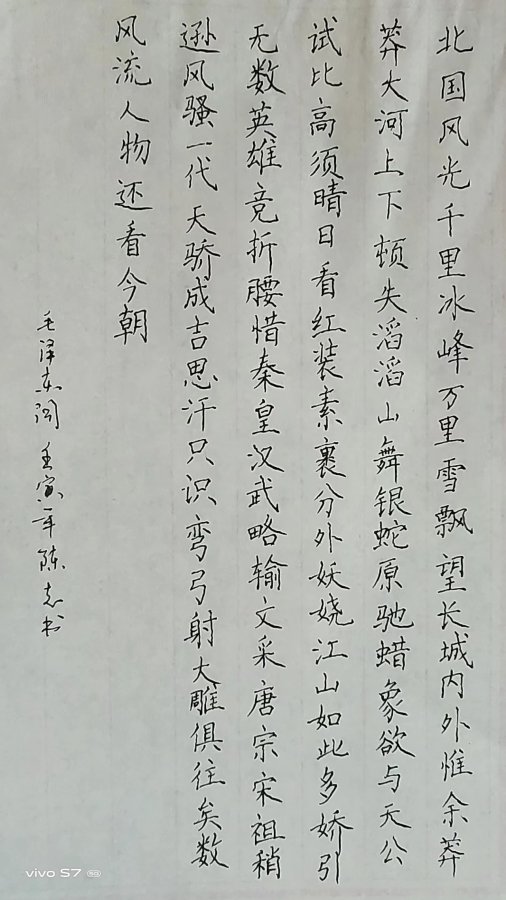 北国风光千里冰峰万里雪飘望长城内外惟余莽
莽大河上下顿失滔滔山舞银蛇原驰蜡象欲与天公
试比高须晴日看红装素裹分外妖娆江山如此多娇引
无数英雄竞折腰惜秦皇汉武略输文采唐宗宋祖稍
逊风骚一代天骄成吉思汗只识弯弓射大雕俱往矣数
风流人物还看今朝
毛泽东词 壬寅年陈志书
vivo S7 5G